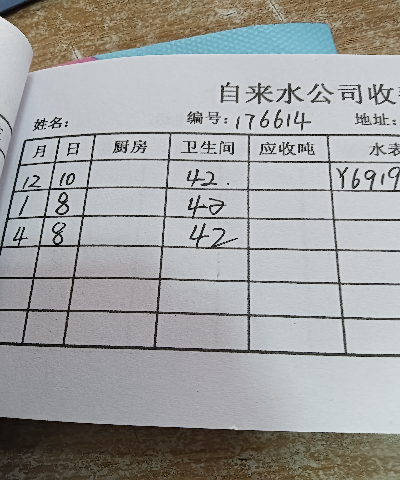 自来水公司收
姓名: 编号: 176614 地址:
月 日 厨房 卫生间 应收吨 水表
12 10 42. Y6919
1 8 42
4 8 42